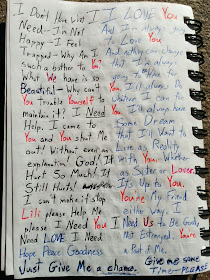 I Don't You Visit
Need - I'm Not
Happy - I Feel
Trapped - Why Am I
such a bother to You?
What We have is so
Beautiful - Why can't
You Trouble Yourself to
maintain it? I Need
Help. I came to
You and You shut Me
out. Without even an
explanation! God! It
Hurt So Much! It
Still Hurts!
I can't make it stop
Lili please Help Me
please I Need You I
Need LOVE I Need
Hope Peace Goodness
Just Give Me a chance.
I I LOVE You
And I'm always
Love You.
And nothing can change
that. I'm always
gonna
You. I'll always Do
Whatever I can for
You. I'll always have
Some Dream
that I'll Want to
Live as Reality
With You. Whether
as Sister or Lover.
It's Up to You.
You're My Friend
either way. I
Need Us to Be Godly
Not Estranged. You're
a Part of Me.
Give me some
Time - PLEASE